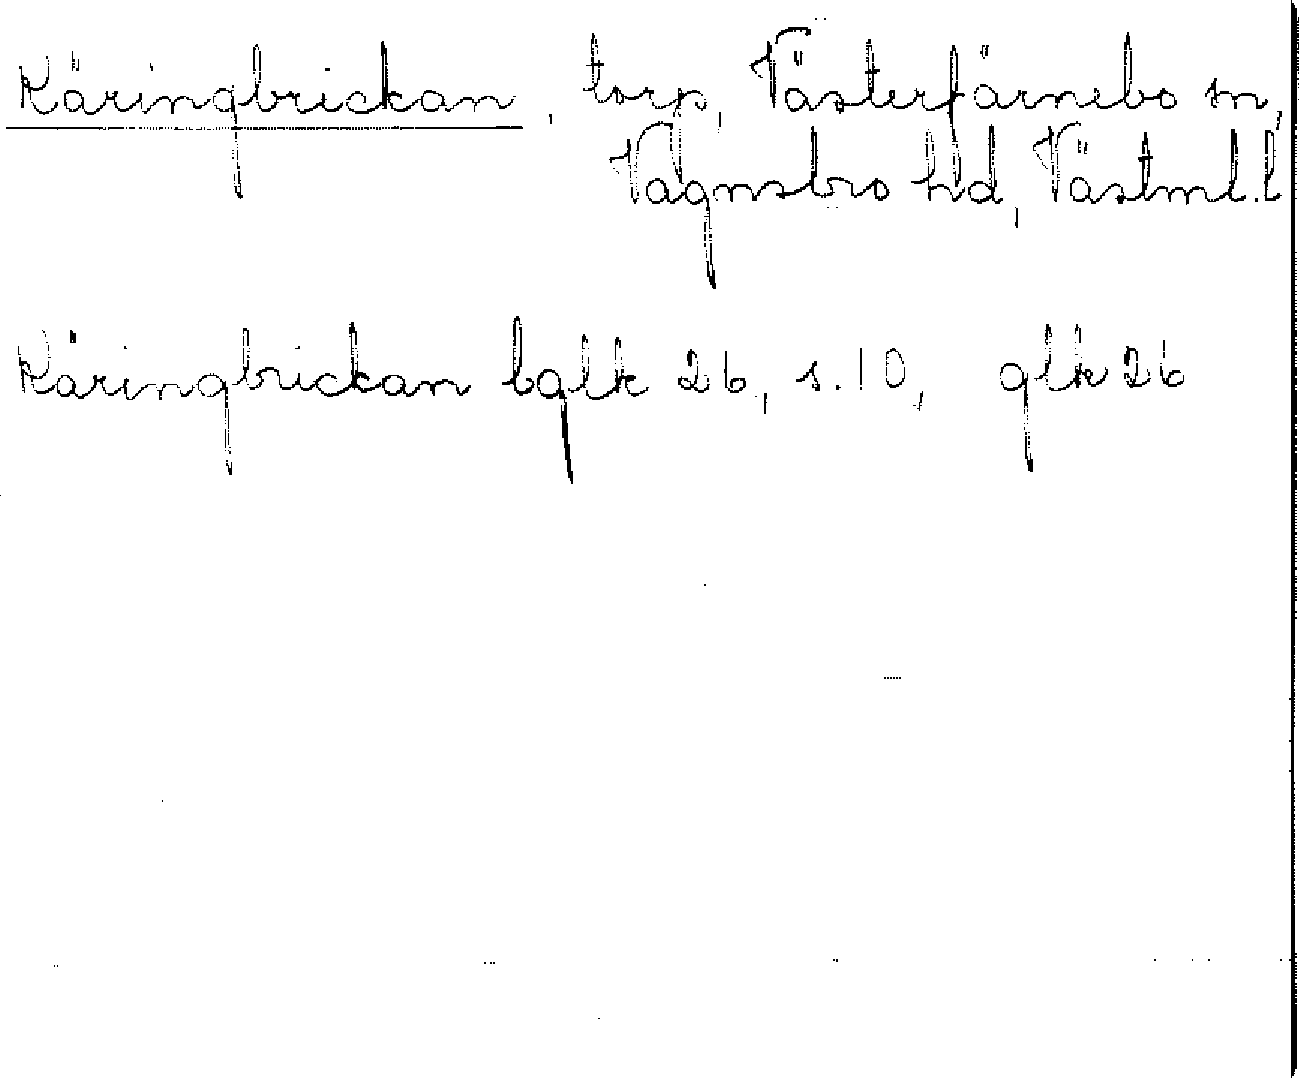 Käringbrickan, torp, Västerfärnebo sn,
Vagnsbro hd, Västml. l
Käringbrickan bglk 26, s. 10, glk 26